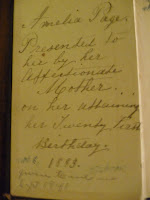 Amelia Page
Presented to
her by her
Affectionate
Mother
on her attaining
her Twenty first
Birthday.
1893.